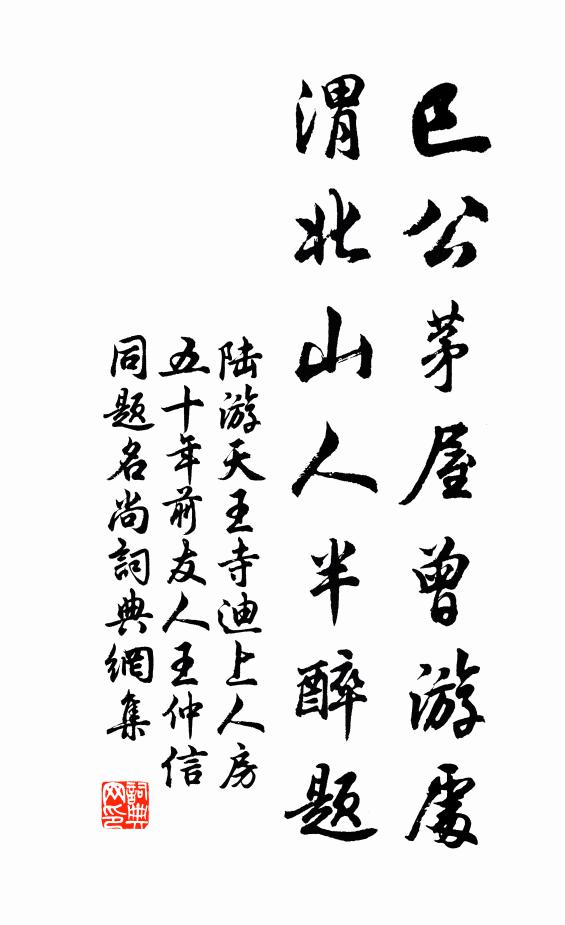 巳公茅屋曾游處
渭北山人半醉题
陆游天王寺迪上人房
五十年前友人王仲信
同题名尚詞典網集
詞典网印